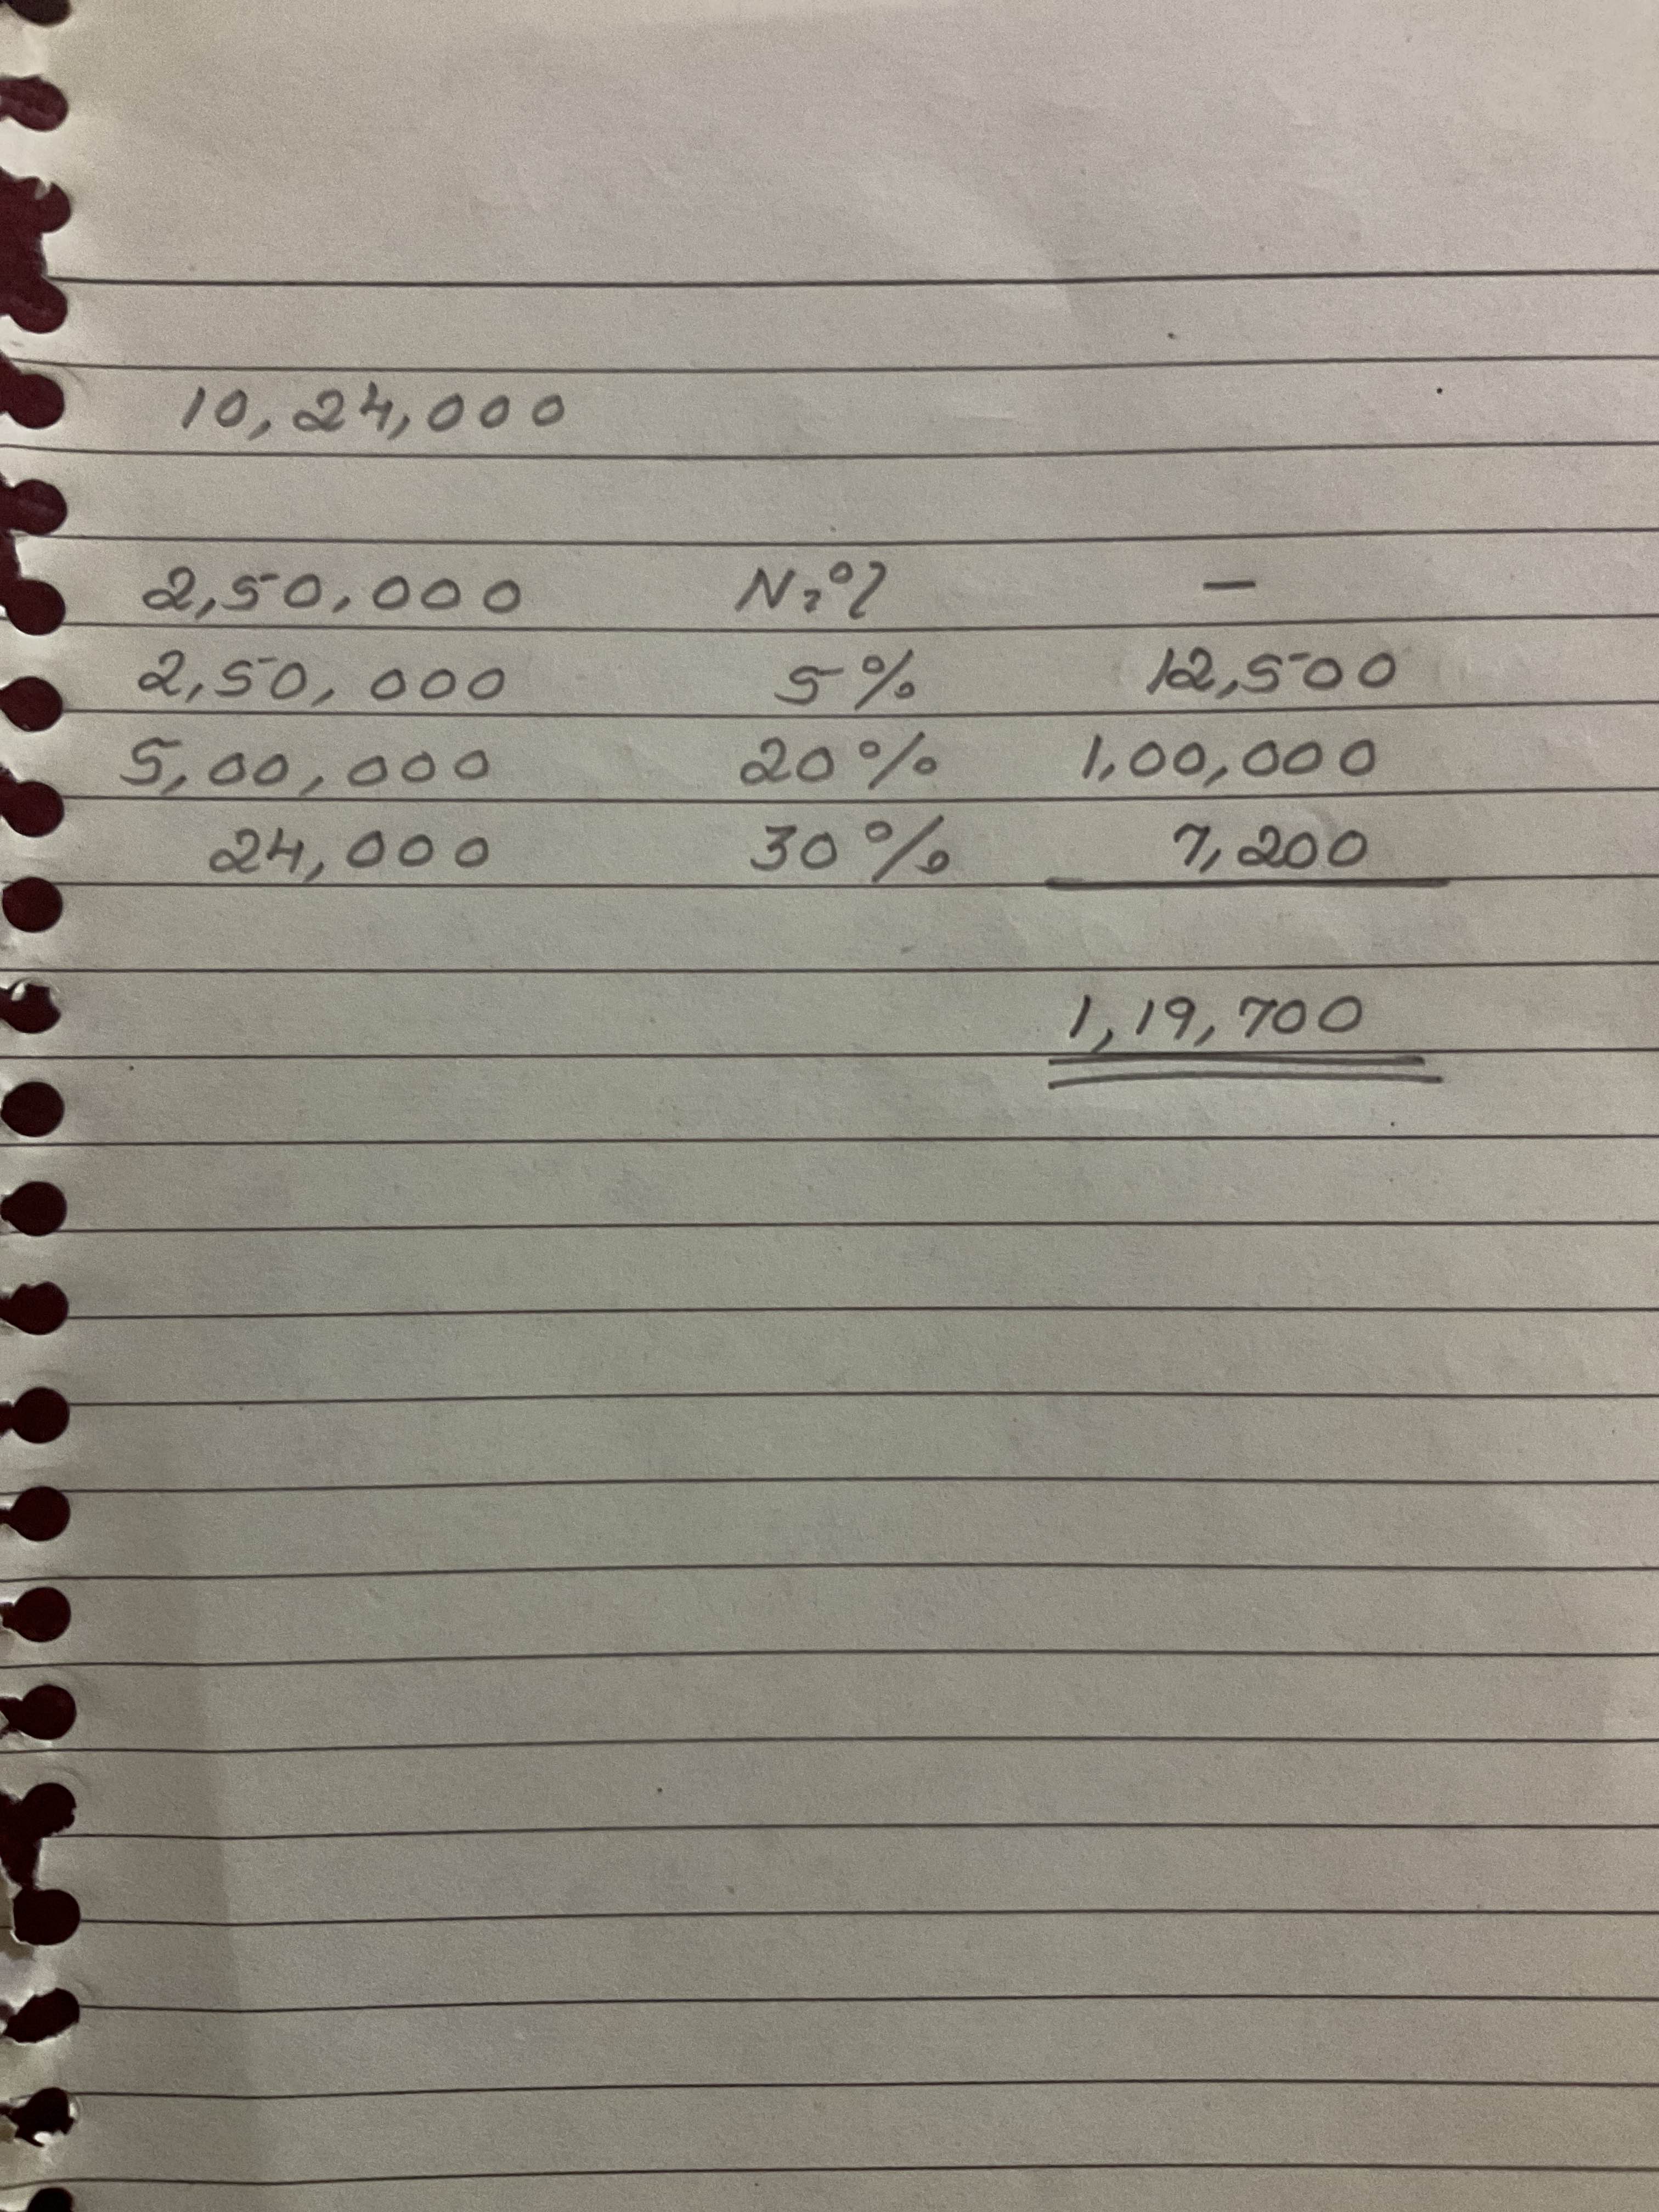 10,24,000
2,50,000 Nil —
2,50,000 5% 12,500
5,00,000 20% 1,00,000
24,000 30% 7,200
1,19,700